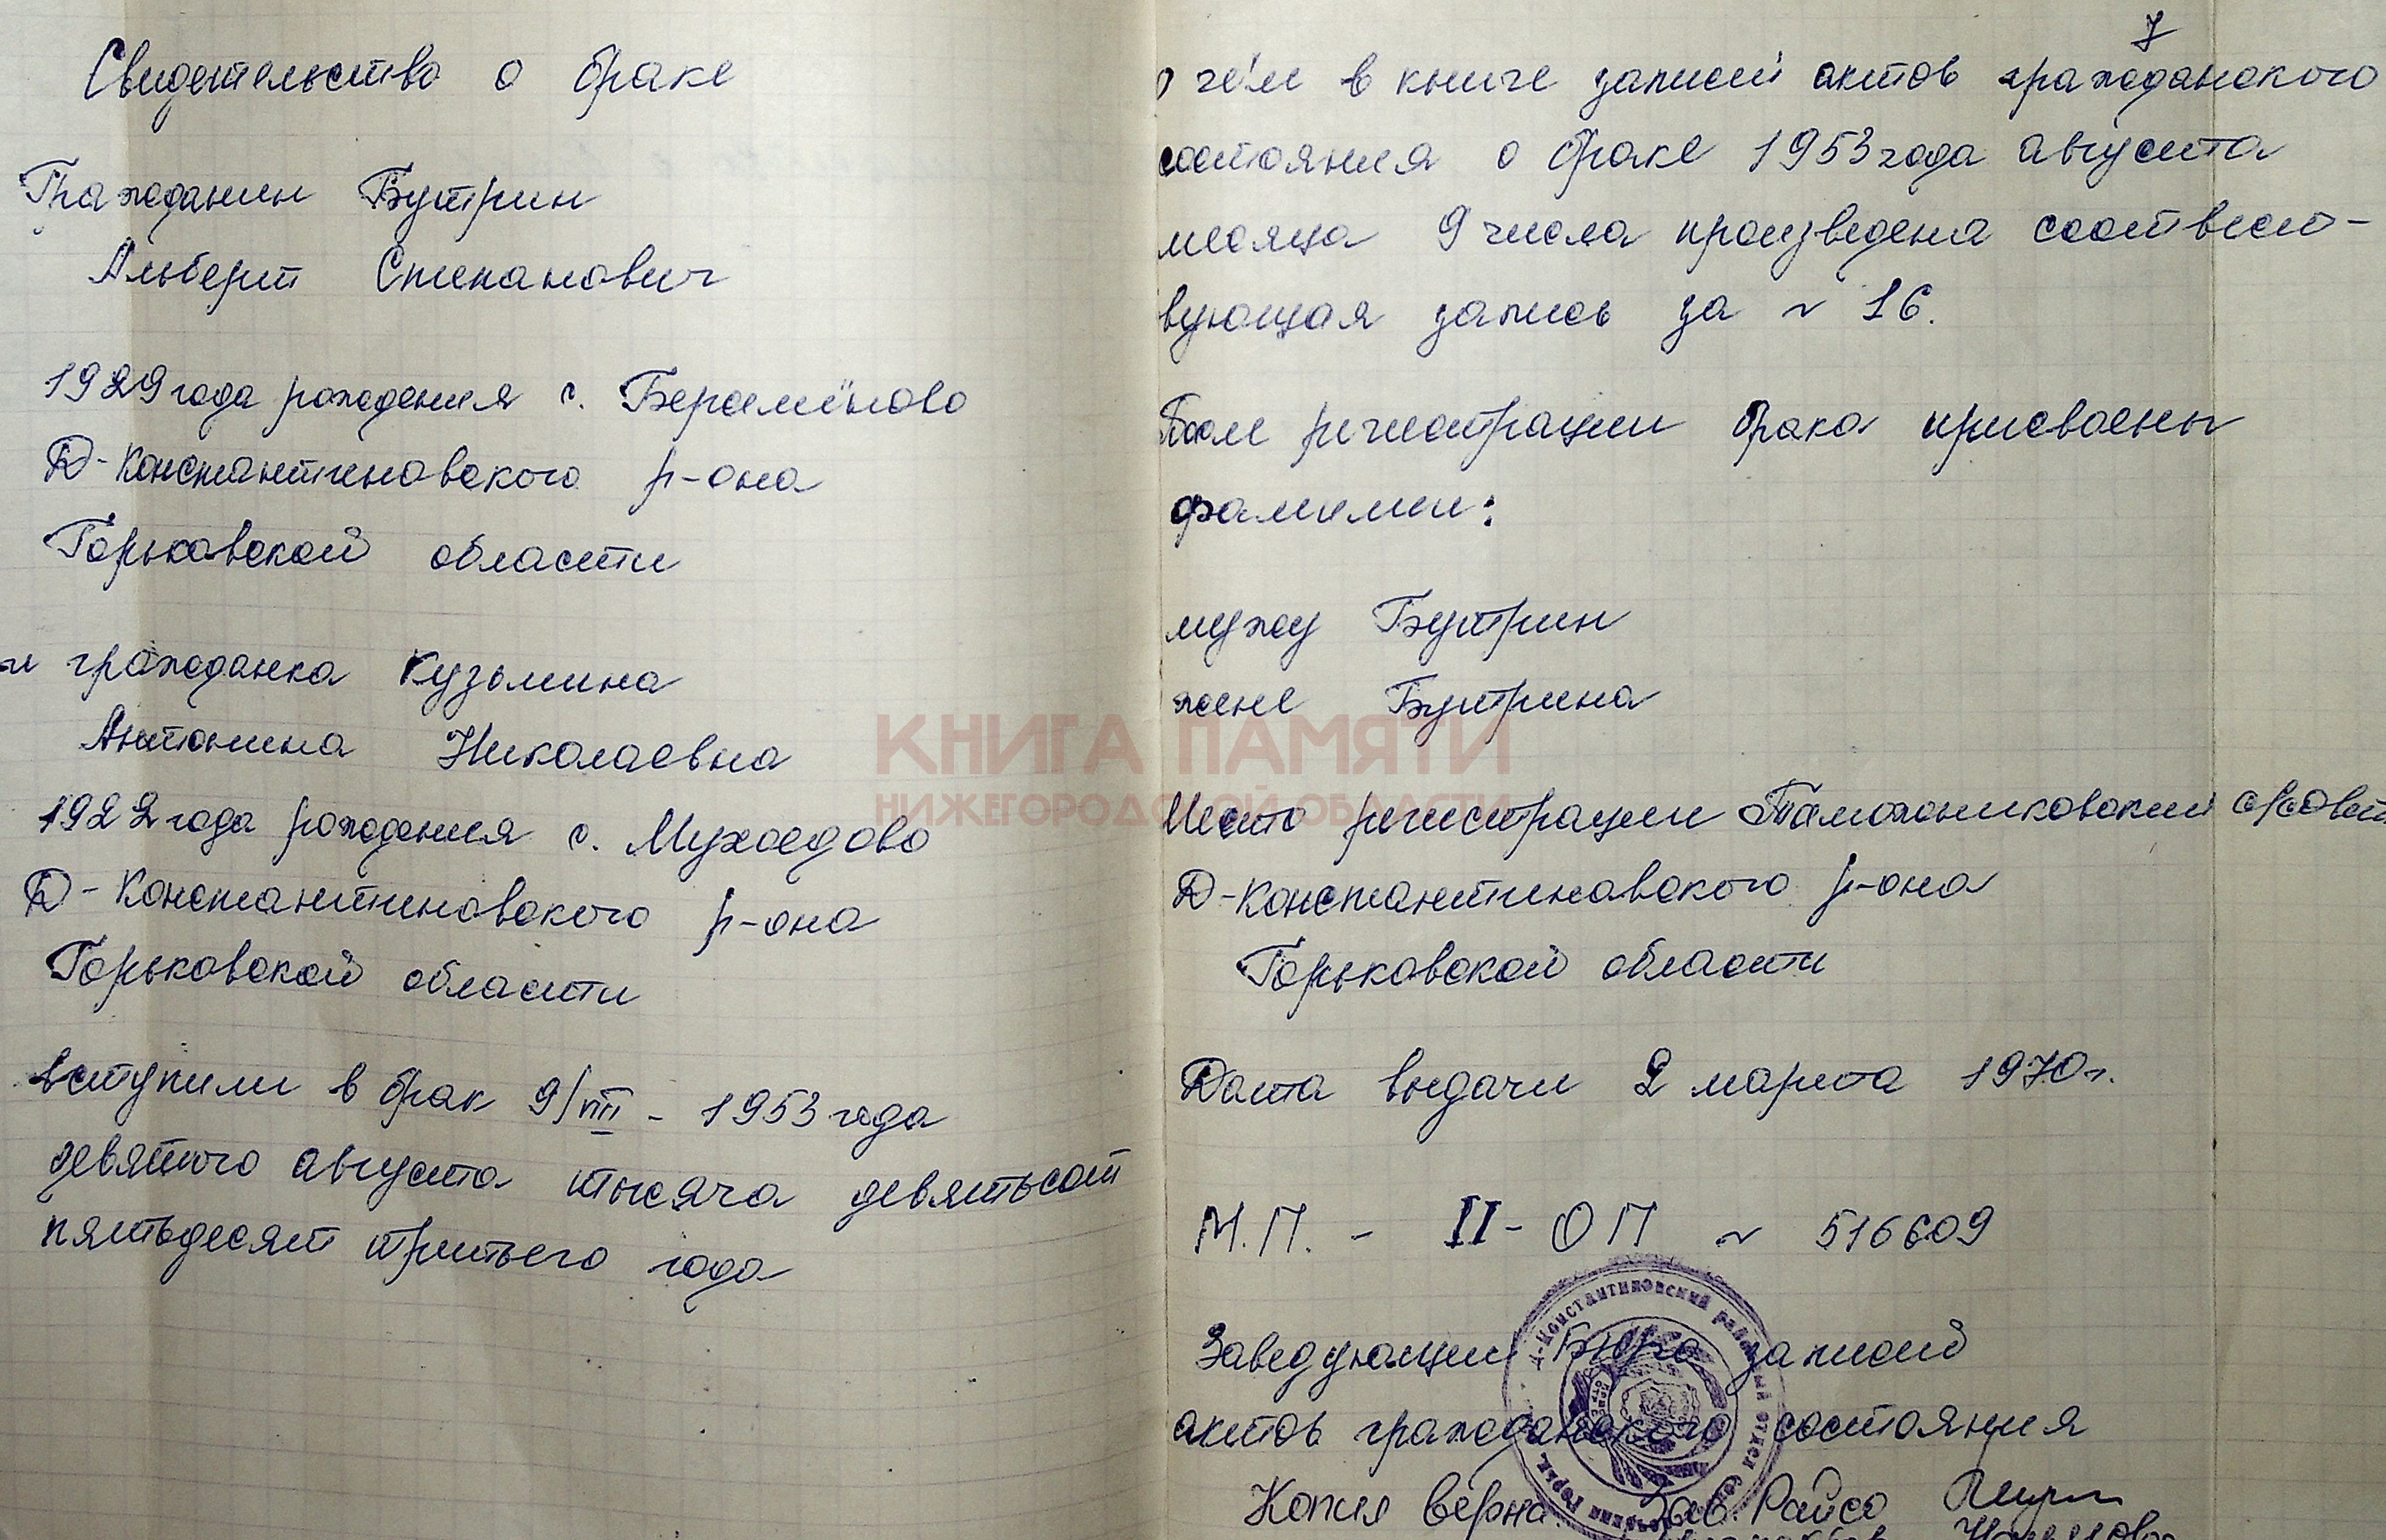 Свидетельство о браке
Гражданин Бутрин
Альберт Степанович
1929 года рождения с. Берсемёново
Д-Константиновского р-она
Горьковской области
и гражданка Кузьмина
Антонина Николаевна
1922 года рождения с. Мухоедово
Д-Константиновского р-она
Горьковской области
вступили в брак 9/VIII - 1953 года
девятого августа тысяча девятьсот
пятьдесят третьего года
7
о чём в книге записей актов гражданского
состояния о браке 1953 года августа
месяца 9 числа произведена соответст-
вующая запись за № 16.
После регистрации брака присвоены
фамилии:
мужу Бутрин
жене Бутрина
КНИГА ПАМЯТИ
НИЖЕГОРОДСКОЙ ОБЛАСТИ
Место регистрации Таможниковский с/совет
Д-Константиновского р-она
Горьковской области
Дата выдачи 2 марта 1970 г.
М.П. - II - ОП № 516609
Заведующий Бюро записей
актов гражданского состояния
Д-Константиновский районный отдел
Копия верна: Зав. Райсо